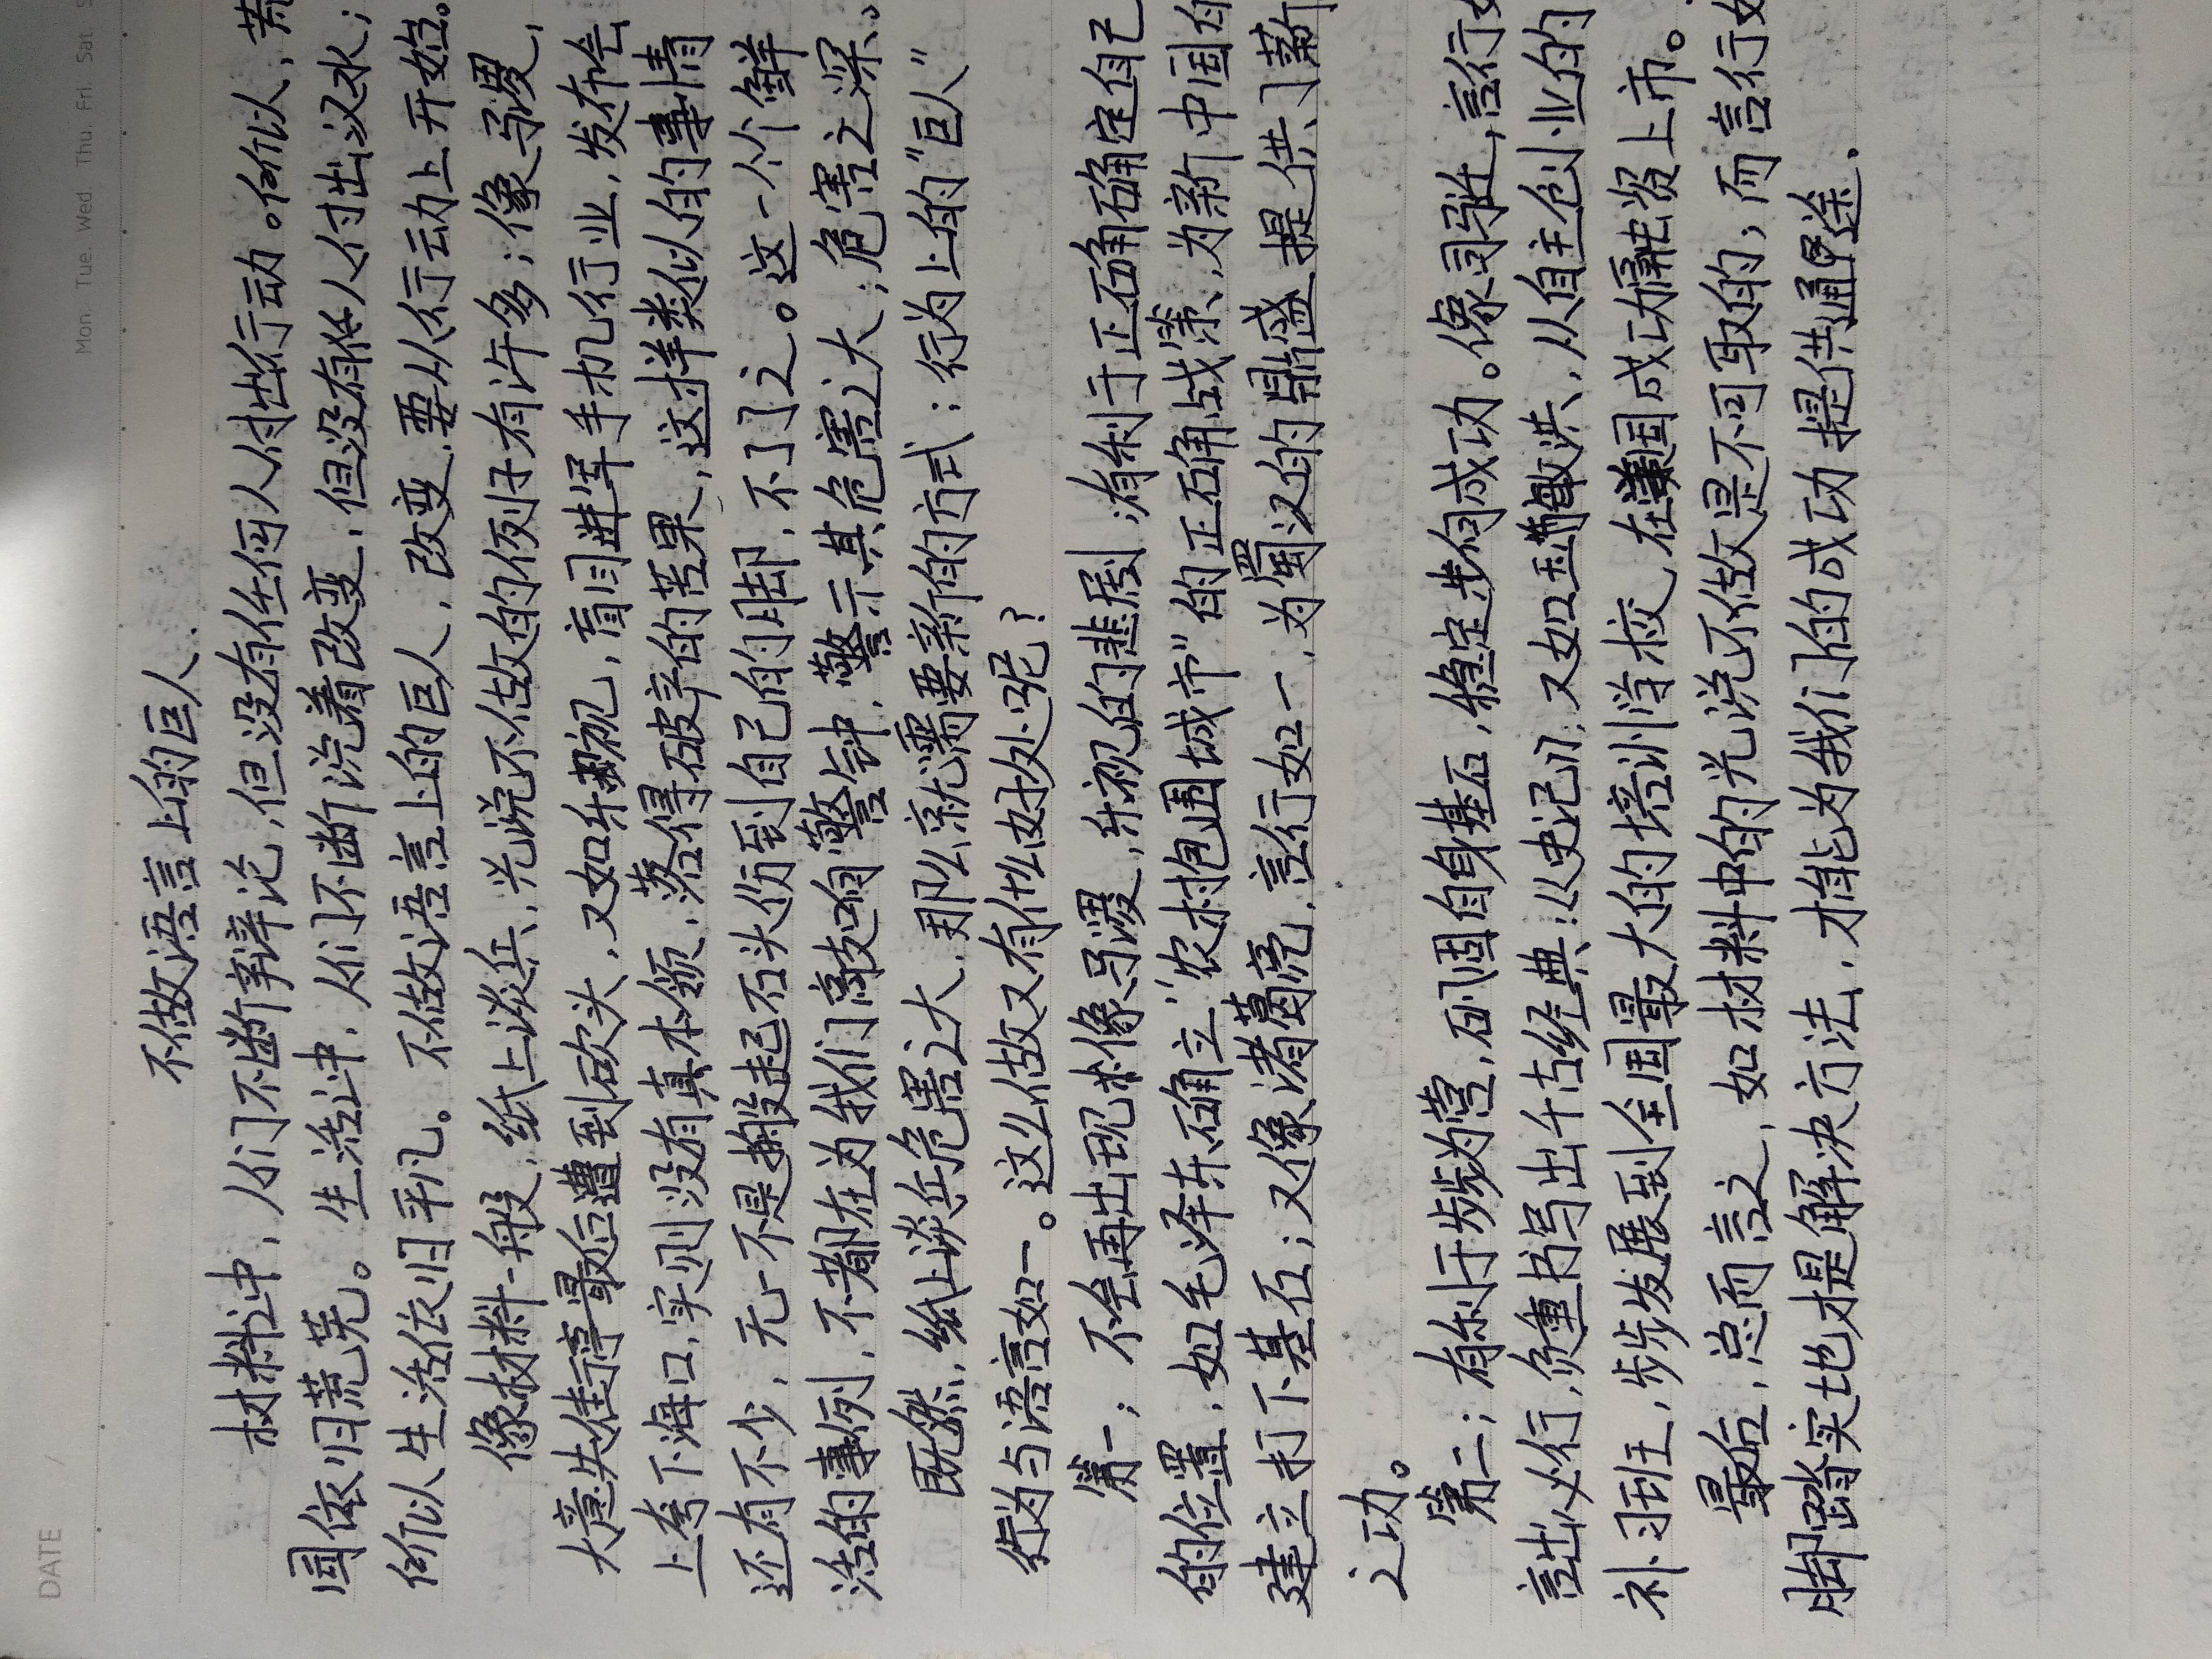 DATE /
Mon. Tue. Wed Thu. Fri. Sat. S
不做语言上的巨人.
材料中,人们不断辩论,但没有任何人付出行动。所以,荒
园依归荒芜。生活中,人们不断说着改变,但没有人付出汉水;
所以生活依归平凡。不做语言上的巨人,改变,要从行动上开始。
像材料一般,纸上谈兵,光说不做的例子有许多;像马谡,
大意失街亭最后遭到砍头,又如乐视,盲目进军手机行业,发布会
上夸下海口,实则没有真本领,落得破产的苦果,这样类似的事情
还有不少,无一不是搬起石头伤到自己的脚,不了了之。这一个个鲜
活的事例,不都在为我们敲响警钟,警示其危害之大;危害之深。
既然,纸上谈兵危害之大,那么就需要新的方式:行为上的“巨人”
行为与语言如一。这么做又有什么好处呢?
第一;不会再出现札像马谡,乐视的悲剧;有利于正确确定自己
的位置,如毛泽东确立“农村包围城市”的正确战策,为新中国的
建立打下基石;又像诸葛亮,言行如一,为蜀汉的鼎盛提供了薪
之功。
第二;有利于步步为营,巩固自身基石,稳定步向成功。像司马迁,言行如
言出必行,负重书写出千古经典:《史记》,又如俞敏洪,从自主创业的
补习班,步步发展到全国最大的培训学校,在美国成功融资上市。
最后,总而言之,如材料中的光说不做是不可取的;而言行如
脚踏实地才是解决方法,才能为我们的成功提供通途.